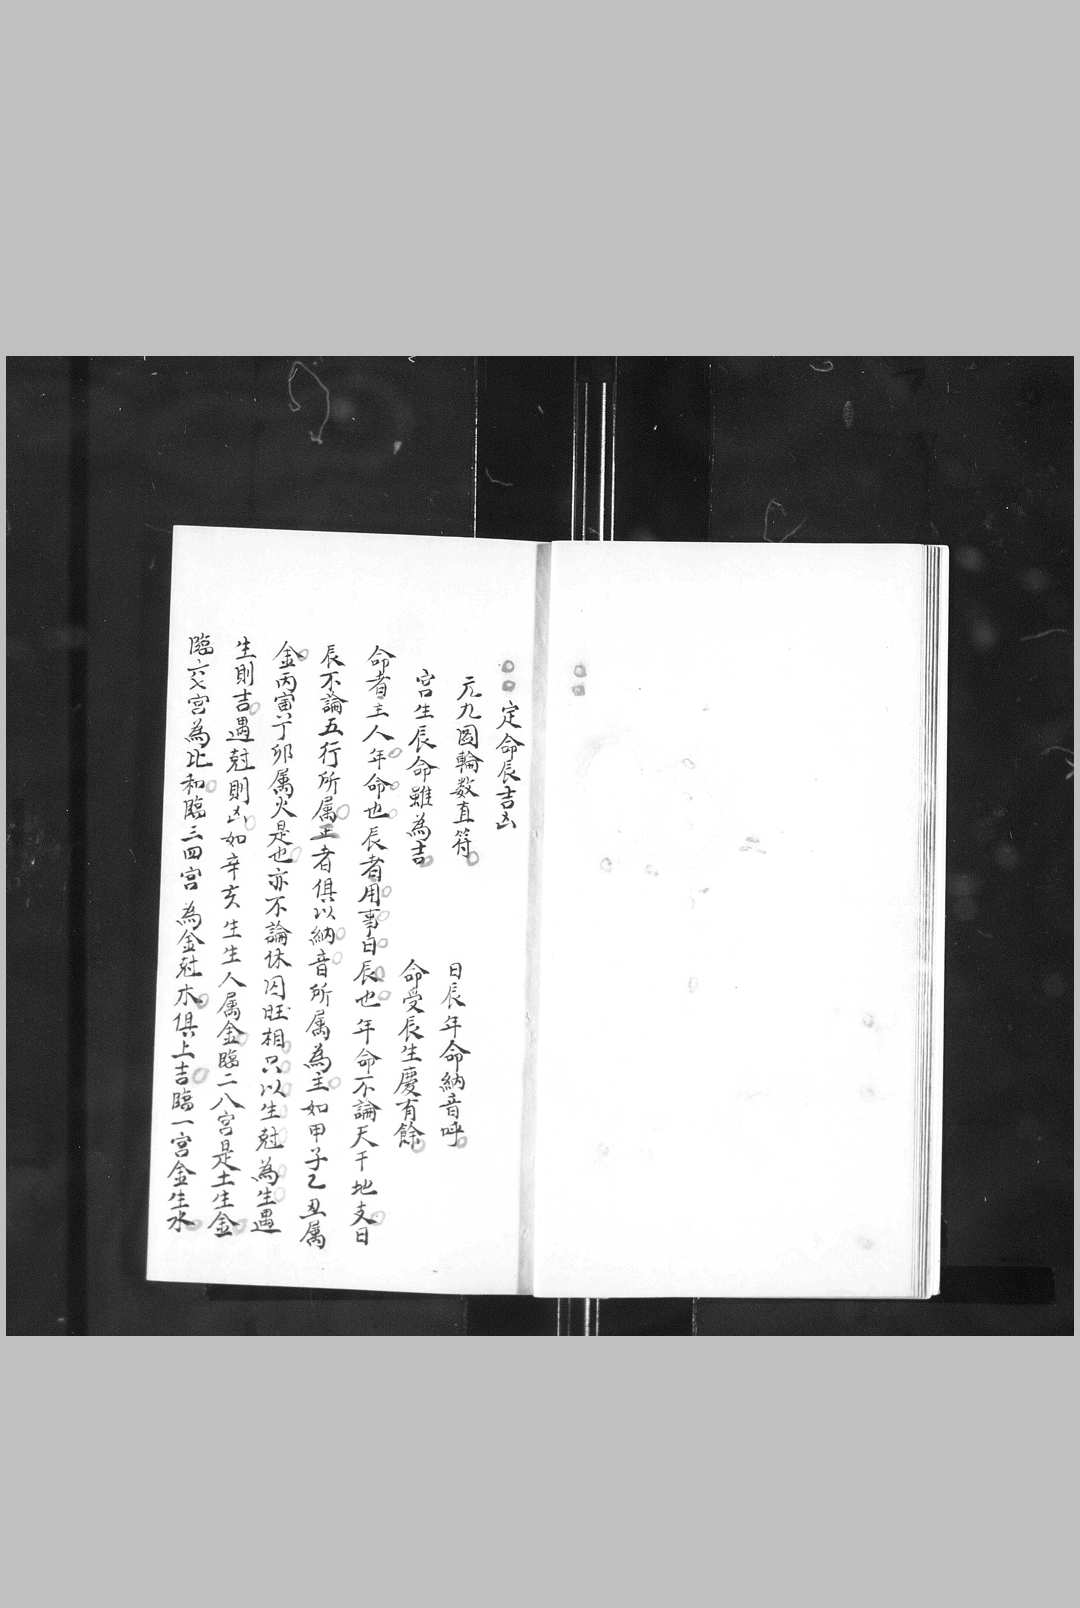 定命辰吉凶
元九图輪数直符 日辰年命納音呼
宮生辰命雖為吉 命受辰生慶有餘
命者主人年命也辰者用事日辰也年命不論天干地支日
辰不論五行所属王者俱以納音所属為主如甲子乙丑属
金丙寅丁卯属火是也亦不論休囚旺相只以生尅為生遇
生則吉遇尅則凶如辛亥生生人属金臨二八宮是土生金
臨六七宮為比和臨三四宮為金尅木俱上吉臨一宮金生水